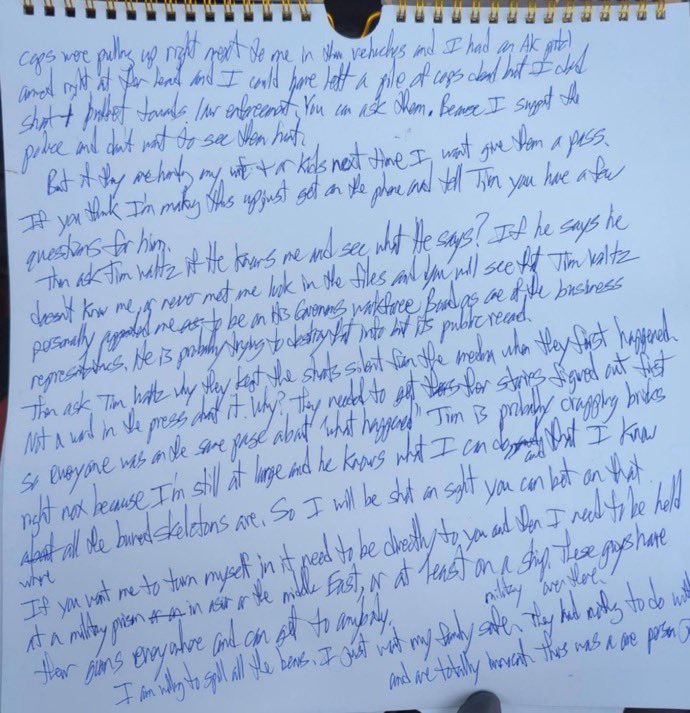 cops were pulling up right next to me in their vehicles and I had an AK pistol
aimed right at their head and I could have left a pile of cops dead but I
shot bullet towards law enforcement. You can ask them. Because I support the
police and don't want to see them hurt.
But if they are my wife + or kids next time I wont give them a pass.
If you think I'm making this up just get on the phone and tell Tim you have a few
questions for him.
Then ask Tim Waltz if He knows me and see what He says? If he says he
doesn't know me, or never met me look in the files and you will see that Tim Waltz
personally me to be on His Governors workforce Board as one of the business
representatives. He is probably trying to destroy that info but its public record.
Then ask Tim Waltz why they kept the shots silent from the media when they first happened.
Not a word in the press about it. Why? They needed to get their stories figured out first
so everyone was on the same page about "what happened" Tim is probably crapping bricks
right now because I'm still at large and he knows what I can and that I know
where all the buried skeletons are. So I will be shot on sight you can bet on that.
If you want me to turn myself in it need to be directly to you and then I need to be held
at a military prison in or the middle East, or at least on a military ship. These guys have
their goons everywhere and can get to anybody. over there.
I am willing to spill all the beans. I just want my family safe. They had nothing to do with
and are totally innocent. This was a one person